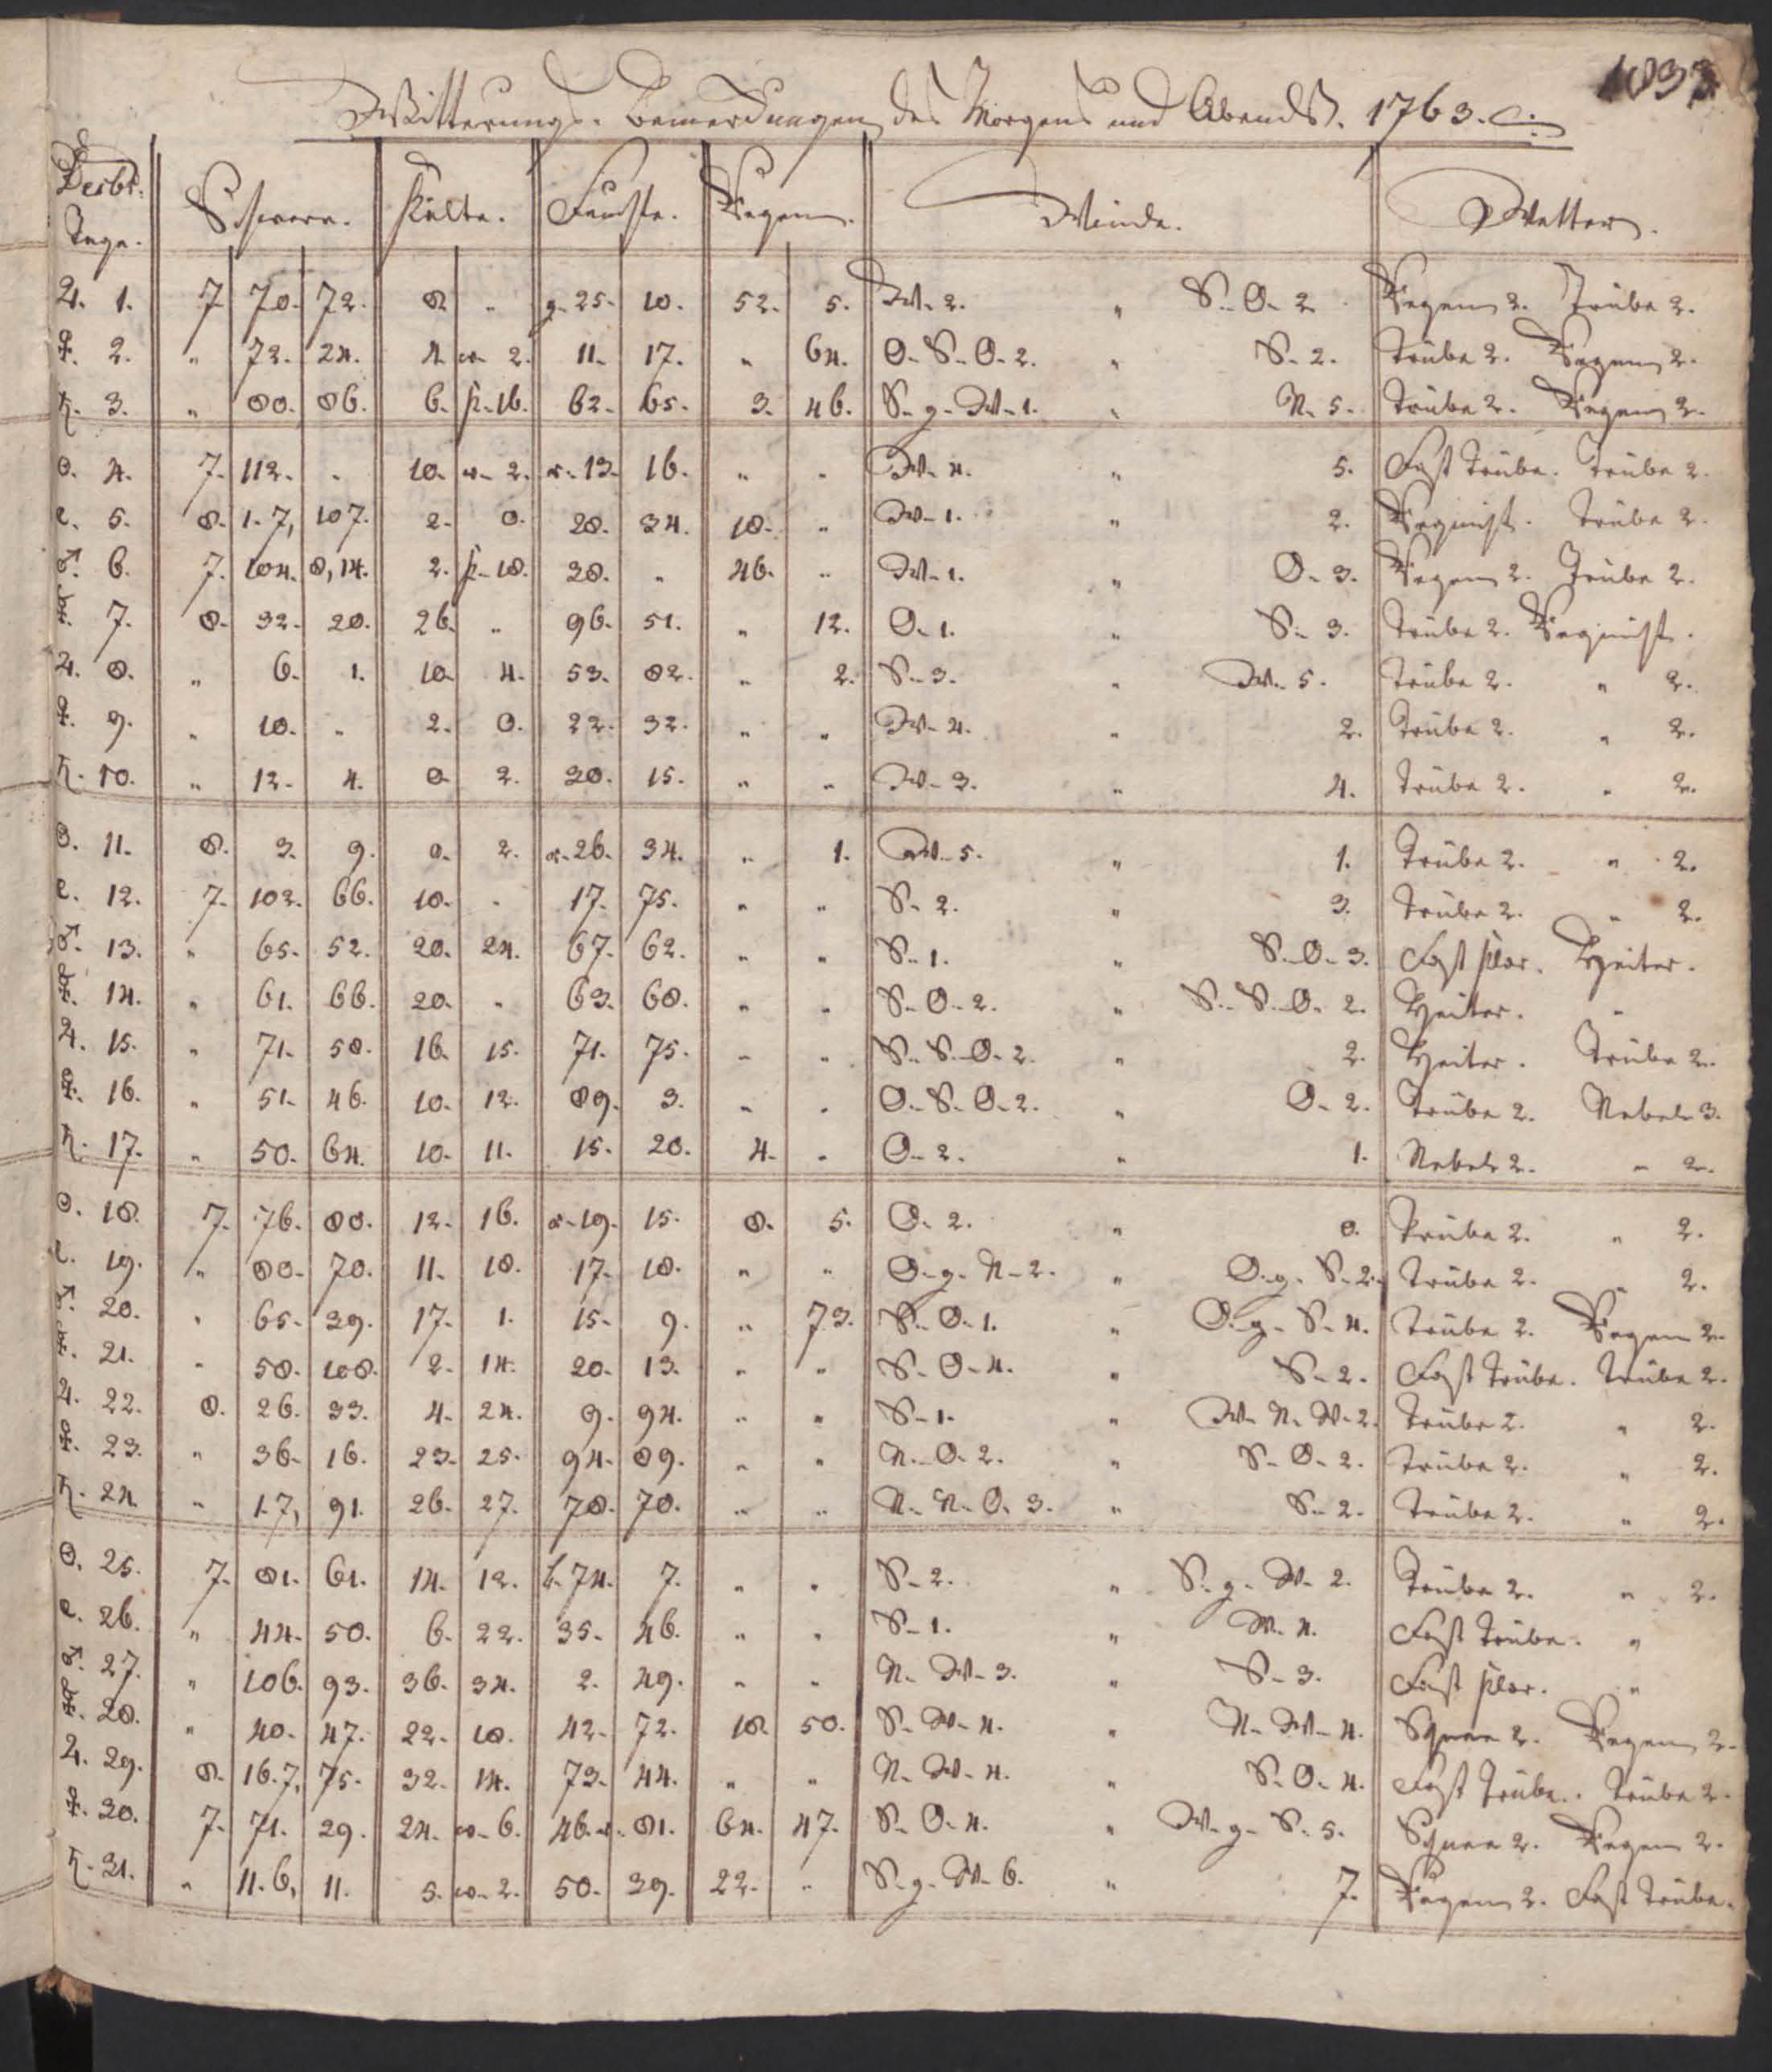 1033
Witterungs-Bemerckungen des Morgens und Abends. 1763.
Decbr. Tage. Schwere. Kälte. Feuchte. Regen. Winde. Wetter.
♃. 1. 7 70. 72. 8. „ g. 25. 10. 52. 5. W. 2. „ S. O. 2. Regen 2. Trübe 2.
♀. 2. „ 72. 24. 4. w. 2. 11. 17. „ 64. O. S. O. 2. „ S. 2. Trübe 2. Regen 2.
♄. 3. „ 80. 86. 6. k. 16. 62. 65. 3. 46. S. g. W. 1. „ N. 5. Trübe 2. Regen 2.
☉. 4. 7. 112. „ 10. w. 2. 13. 16. „ „ W. 4. „ 5. Fast Trübe. Trübe 2.
☾. 5. 8. 1. 7, 107. 2. 0. 28. 34. 18. „ W. 1. „ 2. Regnicht. Trübe 2.
♂. 6. 7. 104. 8, 14. 2. k. 18. 28. „ 46. „ W. 1. „ O. 3. Regen 2. Trübe 2.
☿. 7. 8. 32. 20. 26. „ 96. 51. „ 12. O. 1. „ S. 3. Trübe 2. Regnicht.
♃. 8. „ 6. 1. 10. 4. 53. 82. „ 2. S. 3. „ W. 5. Trübe 2. „ 2.
♀. 9. „ 10. „ 2. 0. 22. 32. „ „ W. 4. „ 2. Trübe 2. „ 2.
♄. 10. „ 12. 4. 0. 2. 30. 15. „ „ W. 3. „ 4. Trübe 2. „ 2.
☉. 11. 8. 3. 9. 0. 2. 26. 34. „ 1. W. 5. „ 1. Trübe 2. „ 2.
☾. 12. 7. 102. 66. 10. „ 17. 75. „ „ S. 2. „ 3. Trübe 2. „ 2.
♂. 13. „ 65. 52. 20. 24. 67. 62. „ „ S. 1. „ S. O. 3. Fast klar. Heiter.
☿. 14. „ 61. 66. 20. „ 63. 68. „ „ S. O. 2. „ S. S. O. 2. Heiter. „
♃. 15. „ 71. 58. 16. 15. 71. 75. „ „ S. S. O. 2. „ 2. Heiter. Trübe 2.
♀. 16. „ 51. 46. 10. 12. 89. 3. „ „ O. S. O. 2. „ O. 2. Trübe 2. Nebel 3.
♄. 17. „ 50. 64. 10. 11. 15. 20. 4. „ O. 2. „ 1. Nebel 2. „ 2.
☉. 18. 7. 76. 80. 12. 16. 19. 15. 8. 5. O. 2. „ 0. Trübe 2. „ 2.
☾. 19. „ 80. 70. 11. 18. 17. 18. „ „ O. g. N. 2. „ O. g. S. 2. Trübe 2. „ 2.
♂. 20. „ 65. 39. 17. 1. 15. 9. „ 73. S. O. 1. „ O. g. S. 4. Trübe 2. Regen 2.
☿. 21. „ 58. 108. 2. 14. 20. 13. „ „ S. O. 4. „ S. 2. Fast Trübe. Trübe 2.
♃. 22. 8. 26. 33. 4. 24. 9. 94. „ „ S. 1. „ W. N. W. 2. Trübe 2. „ 2.
♀. 23. „ 36. 16. 23. 25. 94. 89. „ „ N. O. 2. „ S. O. 2. Trübe 2. „ 2.
♄. 24. „ 1. 7, 91. 26. 27. 78. 70. „ „ N. N. O. 3. „ S. 2. Trübe 2. „ 2.
☉. 25. 7. 81. 61. 14. 12. 74. 7. „ „ S. 2. „ S. g. W. 2. Trübe 2. „ 2.
☾. 26. „ 44. 50. 6. 22. 35. 46. „ „ S. 1. „ W. 4. Fast Trübe. „
♂. 27. „ 106. 93. 36. 34. 2. 49. „ „ N. W. 3. „ S. 3. Fast klar. „
☿. 28. „ 40. 47. 22. 18. 42. 72. 18. 50. S. W. 4. „ N. W. 4. Schnee 2. Regen 2.
♃. 29. 8. 16. 7, 75. 32. 14. 73. 44. „ „ N. W. 4. „ S. O. 4. Fast Trübe. Trübe 2.
♀. 30. 7. 71. 29. 24. w. 6. 46. 81. 64. 47. S. O. 4. „ W. g. S. 5. Schnee 2. Regen 2.
♄. 31. „ 11. 6, 11. 5. w. 2. 50. 39. 22. „ S. g. W. 6. „ 7. Regen 2. Fast Trübe.